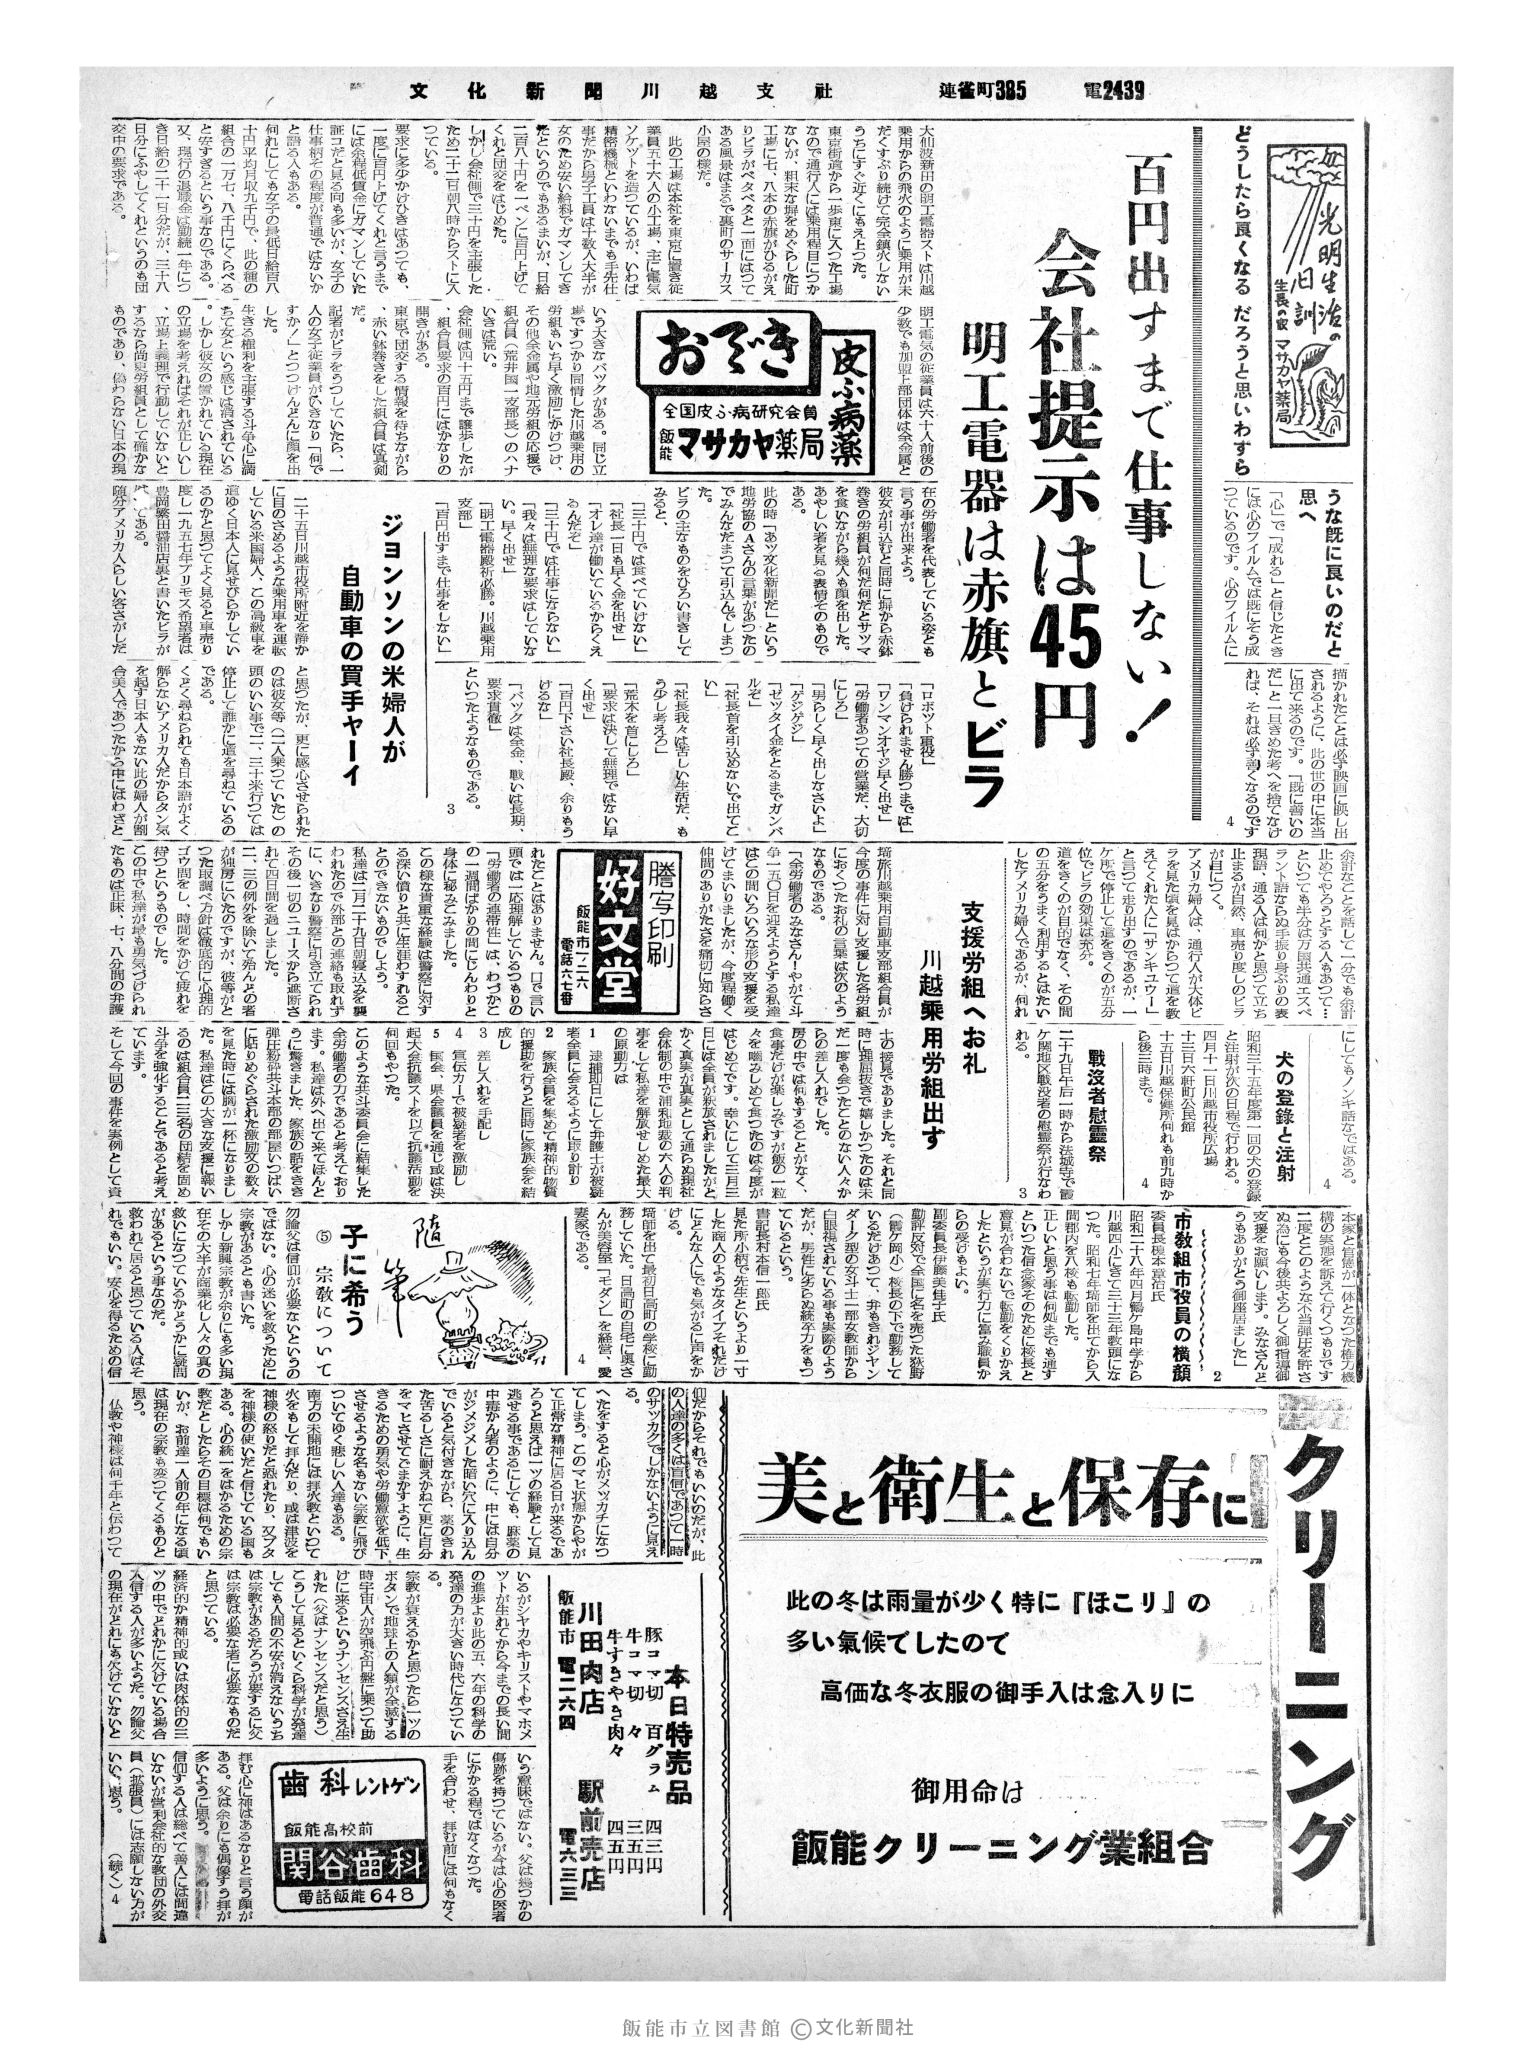 文化新聞川越支社 連雀町385 電2439
光明生活の日訓
生長の家 マサカヤ薬局
どうしたら良くなる だろうと思いわずら
うな既に良いのだと
思へ
「心」で「成れる」と信じたとき
には心のフイルムでは既にそう成
つているのです。心のフイルムに
描かれたことは必ず映画に映し出
されるように、此の世の中に本当
に出て来るのです。「既に善いの
だ」と一旦きめた考へを捨てなけ
れば、それは必ず善くなるのです
4
百円出すまで仕事しない!
会社提示は45円
明工電器は赤旗とビラ
大仙波新田の明工電器ストは川越
乗用からの飛火のように乗用が未
だくすぶり続けて完全鎮火しない
うちにすぐ近くにもえ上つた。
東京街道から一歩東に入つた工場
なので通行人には乗用程目につか
ないが、粗末な塀をめぐらした町
工場に七、八本の赤旗がひるがえ
りビラがペタペタと一面にはつて
ある風景はまるで裏町のサーカス
小屋の様だ。
此の工場は本社を東京に置き従
業員五十六人の小工場、主に電気
ソケツトを造つているが、いわば
精密機械といわないまでも手先仕
事だから男子工員は十数人大半が
女のため安い給料でガマンしてき
たというのでもあるまいが、日給
二百八十円を一ぺンに百円上げて
くれと団交をはじめた。
しかし会社側で三十円を主張した
ため二十二日朝八時からストに入
つている。
要求に多少かけひきはあつても、
一度に百円上げてくれと言うまで
には余程低賃金にガマンしていた
証コだと見る向も多いが、女子の
仕事柄その程度が普通ではないか
と語る人もある。
何れにしても女子の最低日給百八
十円平均月収九千円で、此の種の
組合の一万七、八千円にくらべる
と安すぎるという事なのである。
又、現行の退職金は勤続一年につ
き日給の二十一日分だが、三十八
日分にふやしてくれというのも団
交中の要求である。
明工電気の従業員は六十人前後の
少数でも加盟上部団体は全金属と
おでき
皮ふ病薬
全国皮ふ病研究会員
飯能 マサカヤ薬局
いう大きなバツクがある。同じ立
場ですつかり同情した川越乗用の
労組もいち早く激励にかけつけ、
その他全金属や地元労組の応援で
組合員(荒井国一支部長)のハナ
いきは荒い。
会社側は四十五円まで譲歩したが
、組合員要求の百円にはかなりの
開きがある。
東京で団交する情報を待ちながら
、赤い鉢巻きをした組合員は真剣
だ。
記者がビラをうつしていたら、一
人の女子従業員がいきなり「何で
すか!」とつつけんどんに顔を出
した。
生きる権利を主張する斗争心に満
ちて女という感じは消されている
。しかし彼女の置かれている現在
の立場を考えればそれが正しいし
、立場上義理で行動していないと
するなら尚更労組員として確かな
ものであり、偽わらない日本の現
在の労働者を代表している姿とも
言う事が出来よう。
彼女が引込むと同時に塀から赤鉢
巻きの労組員が何だ何だとサツマ
を食いながら幾人も顔を出した。
あやしい者を見る表情そのもので
ある。
此の時「あツ文化新聞だ」という
地労協のAさんの言葉があつたの
でみんなだまつて引込んでしまつ
た。
ビラの主なものをひろい書きして
みると、
「三十円では食べていけない」
「社長一日も早く金を出せ」
「オレ達が働いているからくえ
るんだぞ」
「三十円では仕事にならない」
「我々は無理な要求はしていな
い。早く出せ」
「明工電器殿祈必勝。川越乗用
支部」
「百円出すまで仕事をしない」
「ロボツト重役」
「負けられません勝つまでは」
「ワンマンオヤジ早く出せ」
「労働者あつての営業だ、大切
にしろ」
「男らしく早く出しなさいよ」
「ゲジゲジ」
「ゼツタイ金をとるまでガンバ
ルぞ」
「社長首を引込めないで出てこ
い」
「社長我々は苦しい生活だ、も
う少し考えろ」
「荒木を首にしろ」
「要求は決して無理ではない早
く出せ」
「百円下さい社長殿、余りもう
けるな」
「バツクは全金、戦いは長期、
要求貫徹」
といつたようなものである。
3
ジョンソンの米婦人が
自動車の買手ヤーイ
二十五日川越市役所附近を静か
に目のさめるような乗用車を運転
している米国婦人、この高級車を
道ゆく日本人に見せびらかしてい
るのかと思つてよく見ると車売り
度し一九五七年アリモス希望者は
豊岡繁田醤油店裏と書いたビラが
はつてある。
随分アメリカ人らしい客さがしだ
と思つたが、更に感心させられた
のは彼女等(二人乗つていた)の
頭のいい事で二、三十米行つては
停止して誰かに道を尋ねているの
である。
くどく尋ねられても日本語がよく
解らないアメリカ人だからタン気
を起す日本人もない此の婦人が割
合美人であつたから中にはわざと
余計なことを話して一分でも余計
止めてやろうとする人もあつて…
といつても半分は万国共通エスペ
ラント語ならぬ手振り身ぶりの表
現語、通る人は何かと思つて立ち
止まるが自然、車売り度しのビラ
が目につく。
アメリカ婦人は、通行人が大体ビ
ラを見た頃を見はからつて道を教
えてくれた人に「サンキユウー」
と言つて走り出すのであるが、一
ケ所で停止して道をきくのが五分
位でビラの効果は充分。
道をきくのが目的でなく、その間
の五分をうまく利用するとはたい
したアメリカ婦人であるが、何れ
にしてもノンキ話なではある。
4
犬の登録と注射
昭和三十五年度第一回の犬の登録
と注射が次の日程で行われる。
四月十一日川越市役所広場
十三日六軒町公民館
十五日川越保健所何れも前九時か
ら後三時まで。
4
戰没者慰霊祭
二十九日午后一時から法城寺で霞
ケ関地区戦没者の慰霊祭が行なわ
れる。
3
支援労組へお礼
川越乗用労組出す
埼旅川越乗用自動車支部組合員が
今度の事件に対し支援した各労組
におくつたお礼の言葉は次のよう
なものである。
「全労働者のみなさん!やがて斗
争一五〇日を迎えようとする私達
はこの間いろいろな形の支援を受
けてまいりましたが、今度程働く
仲間のありがたさを痛切に知らさ
謄写印刷
好文堂
飯能市一ノ二六
電話六七番
れたことはありません。口で言い
頭では一応理解しているつもりの
「労働者の連帯性」は、わづかこ
の一週間ばかりの間にじんわりと
身体に秘みこみました。
この様な貴重な経験は警察に対す
る深い憤りと共に生涯わすれるこ
とのできないものでしよう。
私達は二月二十九日朝寝込みを襲
われたので外部との連絡も取れず
に、いきなり警察に引き立てられ
その後一切のニユースから遮断さ
れて四日間を過しました。
二、三の例外を除いて殆んどの者
が独房にいたのですが、彼等がと
つた取調べ方針は徹底的に心理的
ゴウ問をし、時間をかけて疲れを
待つというものでした。
この中で私達が最も勇気づけられ
たものは正味、七、八分間の弁護
士の接見でありました。それと同
時に理屈抜きで嬉しかつたのは未
だ一度も会つたことのない人々か
らの差し入れでした。
房の中では何もすることがなく、
食事だけが楽しみですが飯の一粒
々々を噛みしめて食つたのは今度が
はじめてです。幸いにして三月三
日には全員が釈放されましたがと
かく真実が真実として通らぬ現社
会体制の中で浦和地裁の六人の判
事をして私達を解放せしめた最大
の原動力は
1 逮捕即日にして弁護士が被疑
者全員に会えるように取り計り
2 家族全員を集めて精神的物質
的援助を行うと同時に家族会を結
成し
3 差し入れを手配し
4 宣伝カーで被疑者を激励し
5 国会、県会議員を通じ或は決
起大会抗議ストを以て抗議活動を
何回もやつた。
このような共斗委員会に結集した
全労働者の力であると考えており
ます。私達は外へ出て来てほんと
うに驚きました、家族の話をきき
弾圧粉砕共斗本部の部屋いつぱい
に貼りめぐらされた激励文の数々
を見た時には胸が一杯になりまし
た。私達はこの大きな支援に報い
るのは組合員二三名の団結を固め
斗争を強化することであると考え
ています。
そして今回の事件を実例として資
本家と官憲が一体となつた権力機
構の実態を訴えて行くつもりです
二度とこのような不当弾圧を許さ
ぬ為にも今後共よろしく御指導御
支援をお願いします。みなさんど
うもありがとう御座居ました」
2
市教組市役員の横顔
委員長榎本章治氏
昭和二十八年四月鶴ケ島中学から
川越四小にきて三十三年教頭にな
つた。昭和七年埼師を出てから入
間郡内を八校も転勤した。
正しいと思う事は何処までも通す
といつた信念家そのために校長と
意見が合わないで転勤をくりかえ
したというが実行力に富み職員か
らの受けもよい。
副委員長伊藤美佳子氏
勤評反対で全国に名を売つた荻野
(霞ケ岡小)校長の下で勤務して
いるだけあつて、弁もきれジヤン
ダーク型の女斗士一部女教師から
白眼視されている事も実際のよう
だが、男性に劣らぬ統卒力をもつ
ているという。
書記長村本信一郎氏
見た所小柄で先生というより一寸
した商人のようなタイプそれだけ
にどんな人にでも気がるに声をか
ける。
埼師を出て最初日高町の学校に勤
務していた。日高町の自宅に奥さ
んが美容室「モダン」を経営、愛
妻家である。
4
随筆
子に希う
⑤ 宗教について
勿論父は信仰が必要ないというの
ではない。心の迷いを救うために
宗教があるとも書いた。
しかし新興宗教が余りにも多い現
在その大半が商業化し人々の真の
救いになつているかどうかに疑問
があるという事なのだ。
救われて居ると思つている人はそ
れでもいい。安心を得るための信
仰だからそれでもいいのだが、此
の人達の多くは盲信であつて一時
のサツカクでしかないように見え
る。
へたをすると心がメツカチになつ
てしまう。このマヒ状態からやが
て正常な精神に居る日が来るであ
ろうと思えば一ツの経験として見
逃せる事であるにしても、麻薬の
中毒かん者のように、中には自分
がジメジメした暗い穴に入り込ん
でいると気付きながら、薬のきれ
た苦るしさに耐えかねて更に自分
をマヒさせてごまかすように、生
きるための勇気や労働意欲を低下
させるような名もない宗教に飛び
ついてゆく悲しい人達もある。
南方の未開地には拝火教といつて
火をもして拝んだり、或は津波を
神様の怒りだと恐れたり、又ブタ
を神様の使いだと信じている国も
ある。心の統一をはかるための宗
教だとしたらその目標は何でもい
いが、お前達一人前の年になる頃
は現在の宗教も変つてくるものと
思う。
仏教や神様は何千年と伝わつて
いるがシヤカやキリストやマホメ
ツトが生れてから今までの長い間
の進歩より此の五、六年の科学の
発達の方が大きい時代になつてい
る。
宗教が衰えるかと思つたら一ツの
ボタンで地球上の人類が全滅する
時宇宙人が空飛ぶ円盤に乗つて助
けに来るというナンセンスさえ生
れた(父はナンセンスだと思う)
こうして見るといくら科学が発達
しても人間の不安が消えないうち
は宗教があるだろうが要するに父
は宗教は必要な者に必要なものだ
と思つている。
経済的か精神的或いは肉体的の三
ツの中でどれかに欠けている場合
入信する人が多いようだ。勿論父
の現在がどれにも欠けていないと
いう意味ではない。父は幾つかの
傷跡を持つているが今は心の医者
にかかる程ではなくなつた。
手を合わせ、拝む前には何もなく
拝む心に神はあるなりと言う顔が
ある。父は余りにも偶像すう拝が
多いように思う。
信仰する人は総べて善人には間違
いないが営利会社的な教団の外交
員(拡張員)には志願しない方が
いい、思う。 (続く) 4
歯科 レントゲン
飯能高校前
関谷歯科
電話飯能 648
本日特売品
豚コマ切 百グラム 四三円
牛コマ切 々 三五円
牛すきやき肉 々 四五円
川田肉店 駅前売店
飯能市 電二六四 電六三三
クリーニング
美と衛生と保存に
此の冬は雨量が少く特に『ほこり』の
多い氣候でしたので
高価な冬衣服の御手入は念入りに
御用命は
飯能クリーニング業組合
飯能市立図書館 ©文化新聞社